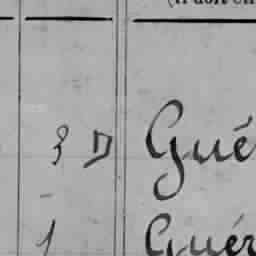 (Il doit en
3 D Gué
1 Guér